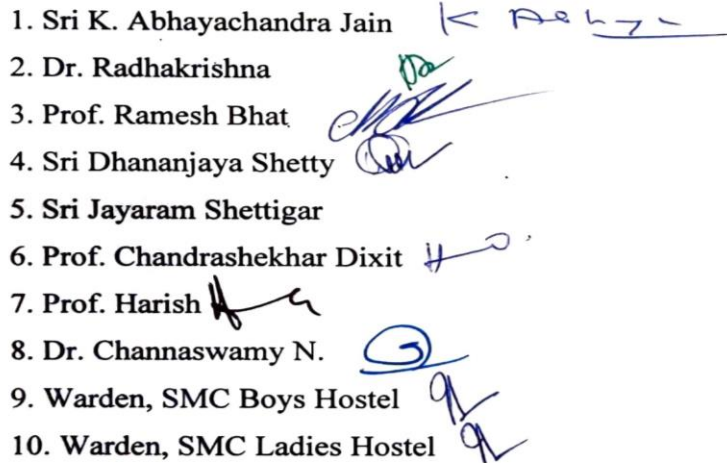 1. Sri K. Abhayachandra Jain K Abhy
2. Dr. Radhakrishna
3. Prof. Ramesh Bhat
4. Sri Dhananjaya Shetty
5. Sri Jayaram Shettigar
6. Prof. Chandrashekhar Dixit
7. Prof. Harish
8. Dr. Channaswamy N.
9. Warden, SMC Boys Hostel
10. Warden, SMC Ladies Hostel